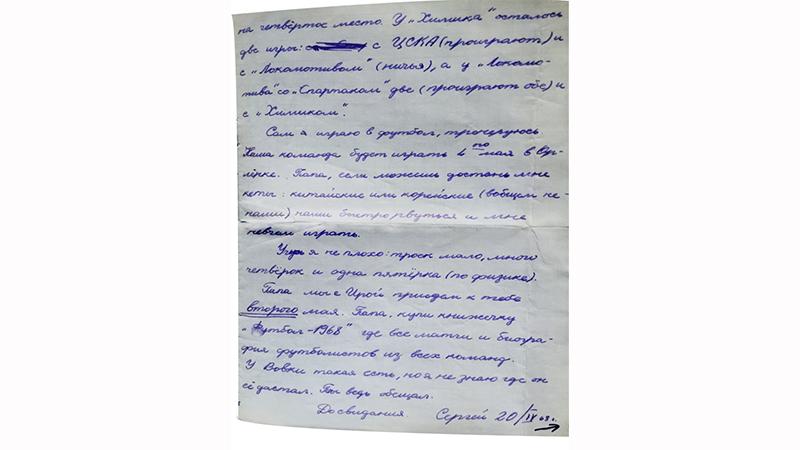 на четвёртое место. У „Химика" осталось
две игры: с ЦСКА (проиграют) и
с „Локомотивом" (ничья), а у „Локомо-
тива" со „Спартаком" две (проиграют обе) и
с „Химиком".
Сам я играю в футбол, тренируюсь
Наша команда будет играть 4го мая в
Папа, если можешь достань мне
кеты: китайские или корейские (вобщем не-
нашы) наши быстро рвуться и мне
невчем играть.
Учусь я не плохо: троек мало, много
четвёрок и одна пятёрка (по физике).
Папа мы с Ирой приедем к тебе
второго мая. Папа, купи книжечку
„Футбол-1968" где все матчи и биогра-
фия футболистов из всех команд.
У Вовки такая есть, но я не знаю где он
её достал. Ты ведь обещал.
До свидания. Сергей 20/IV 68 г.